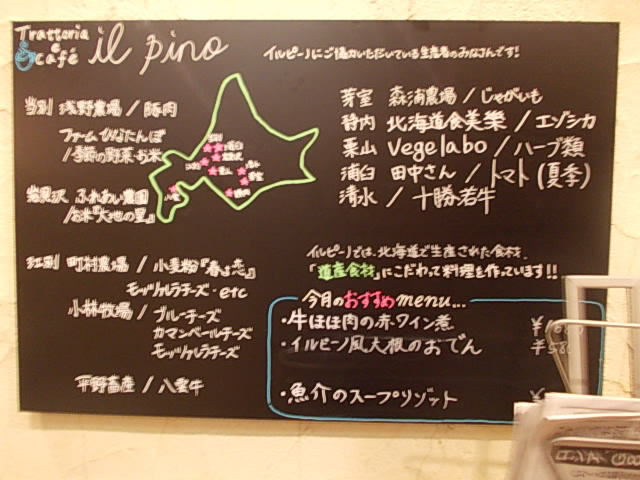 Trattoria e café il pino
イルピーノにご協力いただいている生産者のみなさんです!
当別 浅野農場/豚肉
ファームかなたんぽ
/季節の野菜・お米
岩見沢 ふれあい農園
/お米『大地の星』
江別 町村農場/小麦粉『春よ恋』
モッツァレラチーズ・etc
小林牧場/ブルーチーズ
カマンベールチーズ
モッツァレラチーズ
平野畜産/八雲牛
芽室 森浦農場/じゃがいも
静内 北海道食美樂/エゾシカ
栗山 Vegelabo/ハーブ類
浦臼 田中さん/トマト(夏季)
清水/十勝若牛
イルピーノでは、北海道で生産された食材、
「道産食材」にこだわって料理を作っています!!
今月のおすすめmenu...
・牛ほほ肉の赤ワイン煮 ¥
・イルピーノ風大根のおでん ¥
・魚介のスープリゾット ¥